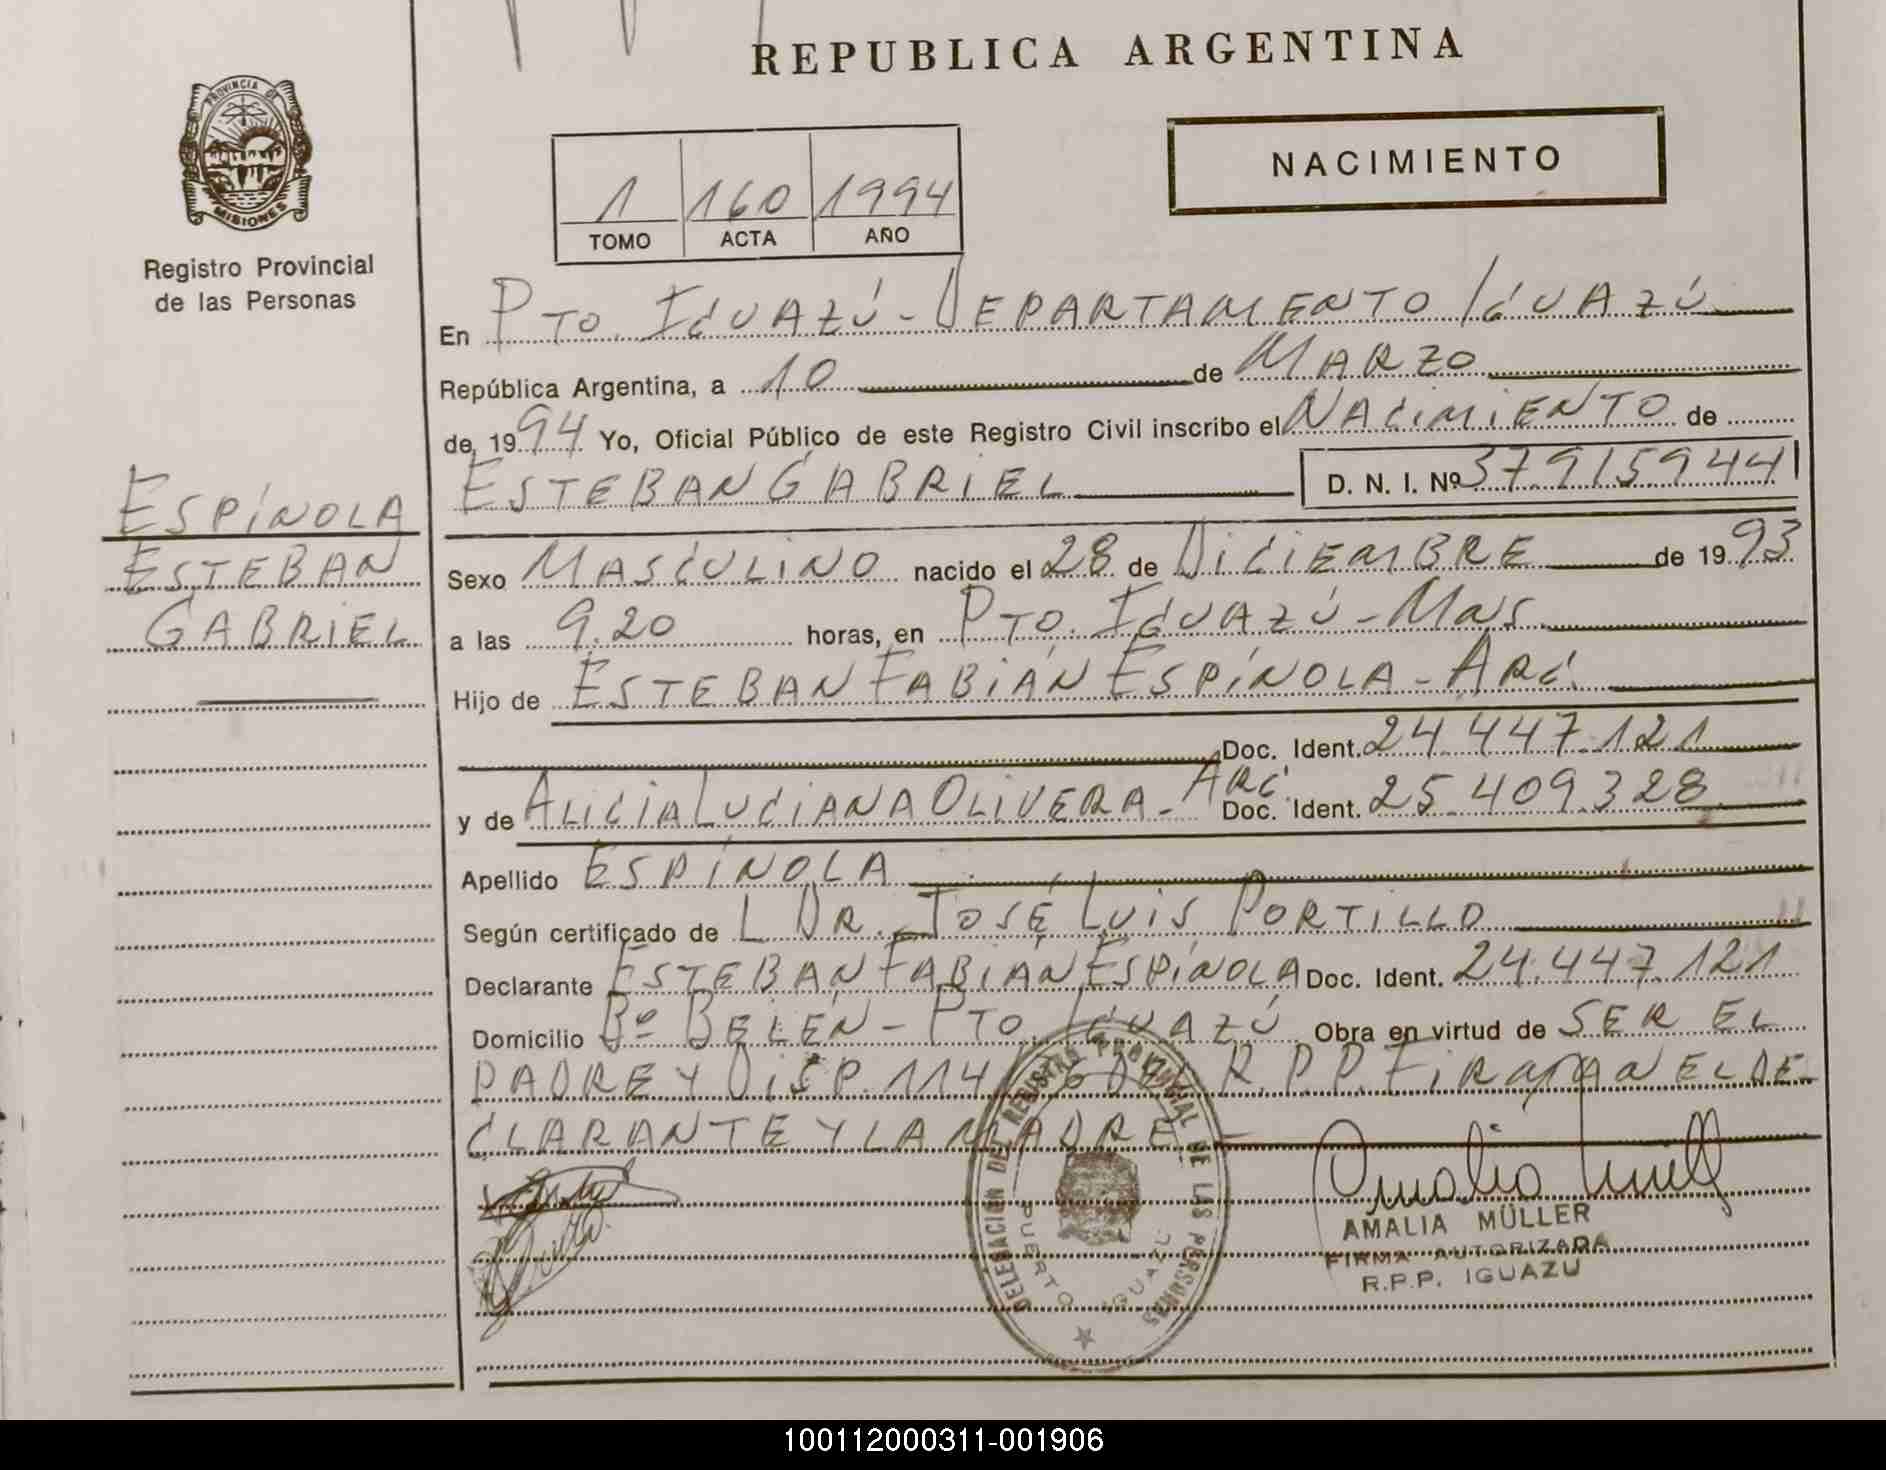 REPUBLICA ARGENTINA
PROVINCIA DE
MISIONES
Registro Provincial
de las Personas
NACIMIENTO
1 160 1994
TOMO ACTA AÑO
En Pto. Iguazú - Departamento Iguazú
República Argentina, a 10 de Marzo
de 1994 Yo, Oficial Público de este Registro Civil inscribo el Nacimiento de
Espínola
Esteban
Gabriel
Esteban Gabriel D. N. I. Nº 37915944
Sexo Masculino nacido el 28 de Diciembre de 1993
a las 9.20 horas, en Pto. Iguazú - Mns.
Hijo de Esteban Fabián Espínola - Arg.
Doc. Ident. 24.447.121
y de Alicia Luciana Olivera - Arg. Doc. Ident. 25.409.328
Apellido Espínola
Según certificado de L Dr. José Luis Portillo
Declarante Esteban Fabián Espínola Doc. Ident. 24.447.121
Domicilio Bº Belén - Pto. Iguazú Obra en virtud de ser el
padre y Disp. 114 R.P.P. Firman el de-
clarante y la madre
DELEGACIÓN DEL REGISTRO PROVINCIAL DE LAS PERSONAS
PUERTO IGUAZU
AMALIA MÜLLER
FIRMA AUTORIZADA
R.P.P. IGUAZU
100112000311-001906